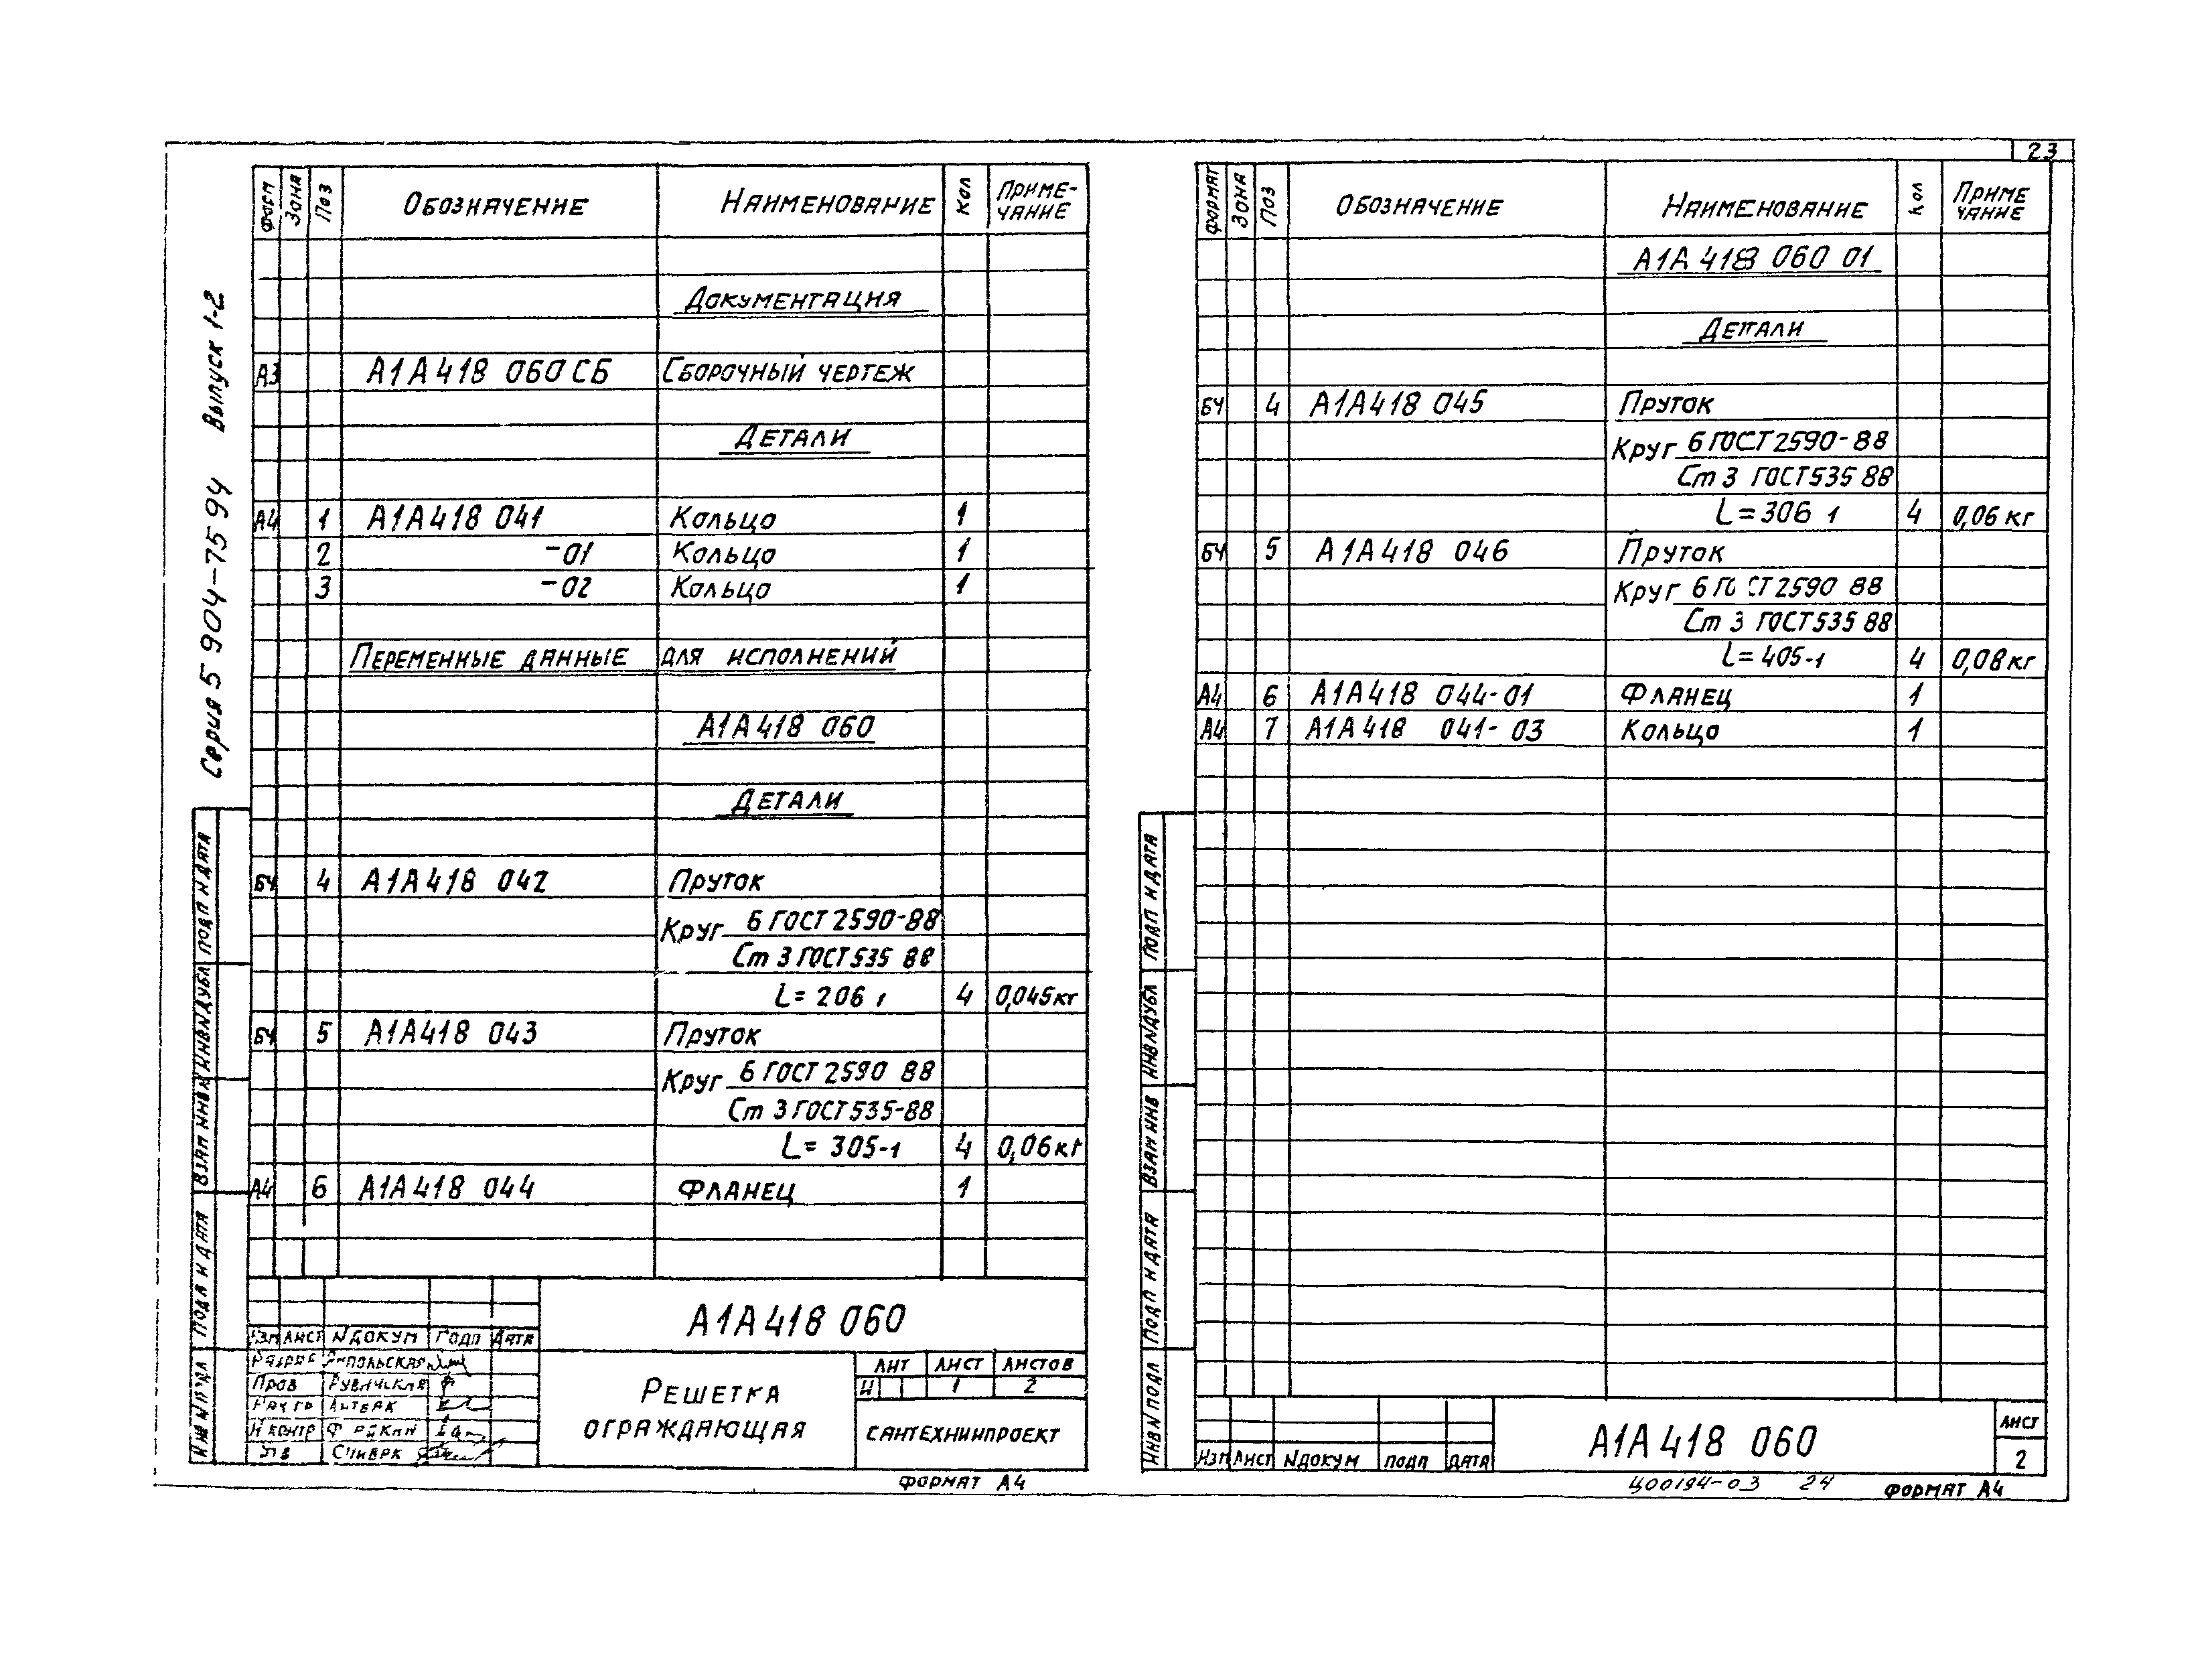 23
Серия 5 904-75 94 Выпуск 1-2
Форм Зона Поз Обозначение Наименование Кол Приме-чание
Документация
А3 А1А418 060 СБ Сборочный чертеж
Детали
А4 1 А1А418 041 Кольцо 1
2 -01 Кольцо 1
3 -02 Кольцо 1
Переменные данные для исполнений
А1А418 060
Детали
БЧ 4 А1А418 042 Пруток
Круг 6 ГОСТ 2590-88
Ст 3 ГОСТ 535 88
L= 206 1 4 0,045кг
БЧ 5 А1А418 043 Пруток
Круг 6 ГОСТ 2590 88
Ст 3 ГОСТ 535-88
L= 305-1 4 0,06кг
А4 6 А1А418 044 Фланец 1
Подп и дата
Инв N дубл
Взам инв N
Подп и дата
Инв N подл
А1А418 060
Изм Лист N докум Подп Дата
Разраб Ямпольская
Пров
Нач гр
Н контр
Утв Спивак
Решетка
ограждающая
Лит Лист Листов
И 1 2
Сантехниипроект
Формат А4
Формат Зона Поз Обозначение Наименование Кол Приме чание
А1А 418 060 01
Детали
БЧ 4 А1А418 045 Пруток
Круг 6 ГОСТ 2590-88
Ст 3 ГОСТ 535 88
L=306 1 4 0,06 кг
БЧ 5 А1А418 046 Пруток
Круг 6 ГОСТ 2590 88
Ст 3 ГОСТ 535 88
L=405-1 4 0,08кг
А4 6 А1А418 044-01 Фланец 1
А4 7 А1А418 041-03 Кольцо 1
Подп и дата
Инв N дубл
Взам инв
Подп и дата
Инв N подл
Изм Лист N докум Подп Дата
А1А418 060
Лист
2
Ц00194-03 24
Формат А4